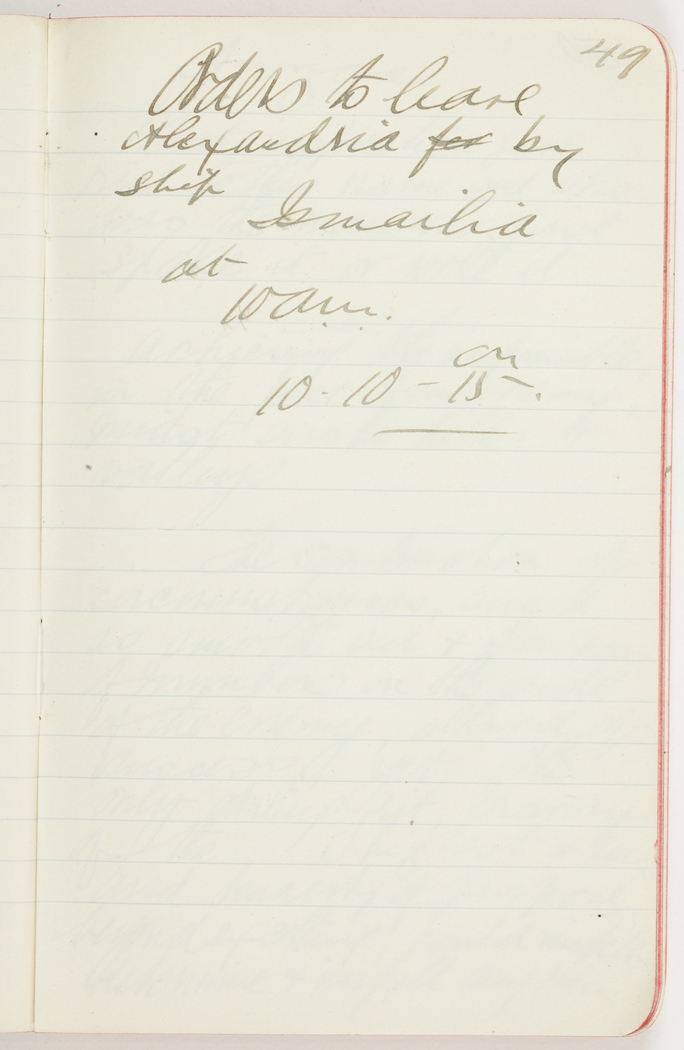 49
Orders to leave
Alexandria for by
ship
Ismailia
at
10 am.
on
10-10-15.